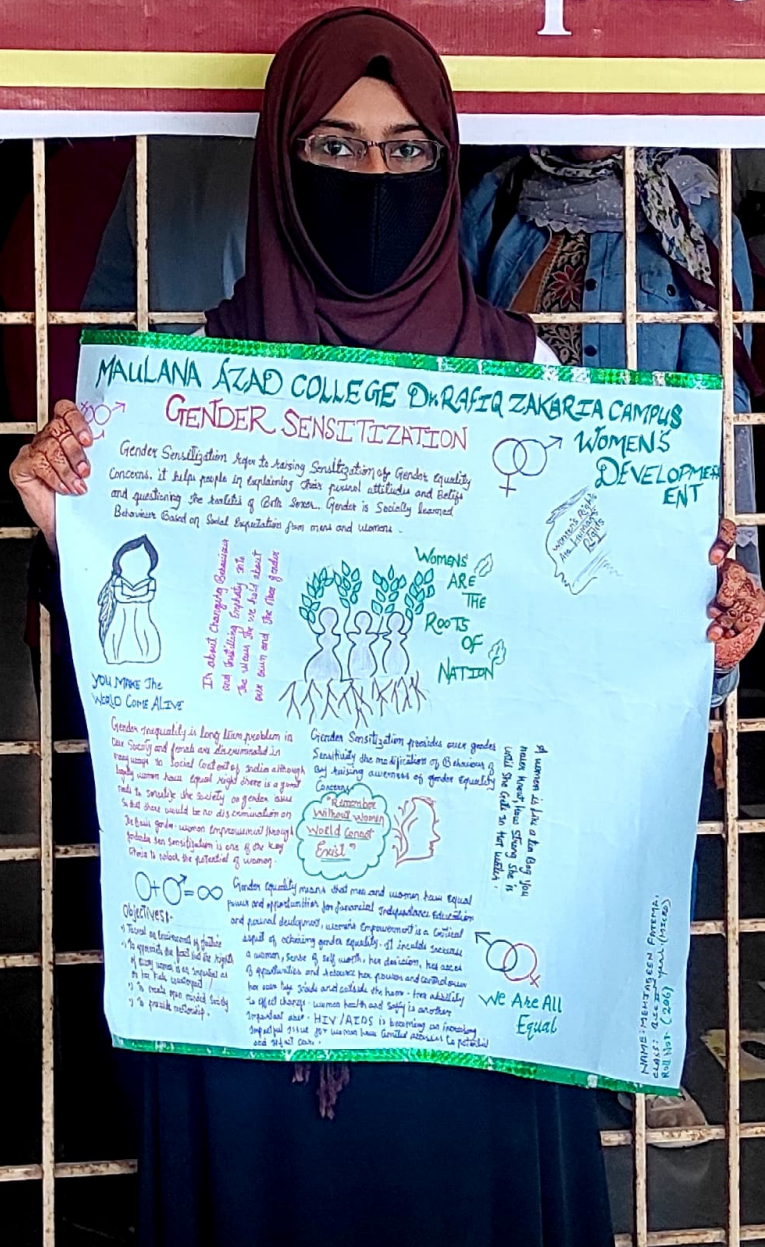 MAULANA AZAD COLLEGE Dr. RAFIQ ZAKARIA CAMPUS
GENDER SENSITIZATION
WOMEN'S
DEVELOPMENT
ENT
Gender Sensitization refer to raising Sensitization of Gender equality
Concerns. it helps people in explaining their personal attitudes and Beliefs
and questioning the realities of Both Sexes. Gender is Socially learned
Behaviour Based on Social Expectation from mens and womens.
Women's Right
Are Human
Rights
It about Changing Behaviour
and instilling Emphaty into
the views the we held about
our own and the other gender
WOMENS
ARE
THE
ROOTS
OF
NATION
YOU MAKE The
WORLD COME ALIVE
Gender Inequality is long term problem in
our Society and female are discriminated in
many ways so Social Context of India although
legally women have equal right there is a great
needs to sensitize the Society on gender issues
So that there would be no discrimination on
the basis gender. women Empowerment through
gender sensitization is one of the key
to unlock the potential of women.
Gender Sensitization provides over gender
Sensitivity the modification of Behaviour of
By raising awerness of gender Equality
Concerns
"Remember
Without Women
World Cannot
Exist"
A women is like a tea Bag you
never know, how strong she is
until She Gets in Hot Water.
O+O=∞
Objectives:-
of every women is as important as
To create open minded Society
Gender Equality means that men and women have equal
power and opportunities for financial Independance Education
and personal devlopment, women's Empowerment is a Critical
aspect of achieving gender equality. it include increase
a women, sense of self worth, her decision, her access
of opportunities and resource her power and control over
her own life inside and outside the home. Her
to effect change. women health and Safty is another
Important area. HIV/AIDS is becoming an
issue for women have limited to
We Are All
Equal
NAME: MEHJABEEN FATEMA.
CLASS: year (MICRO)
Roll No: (206)